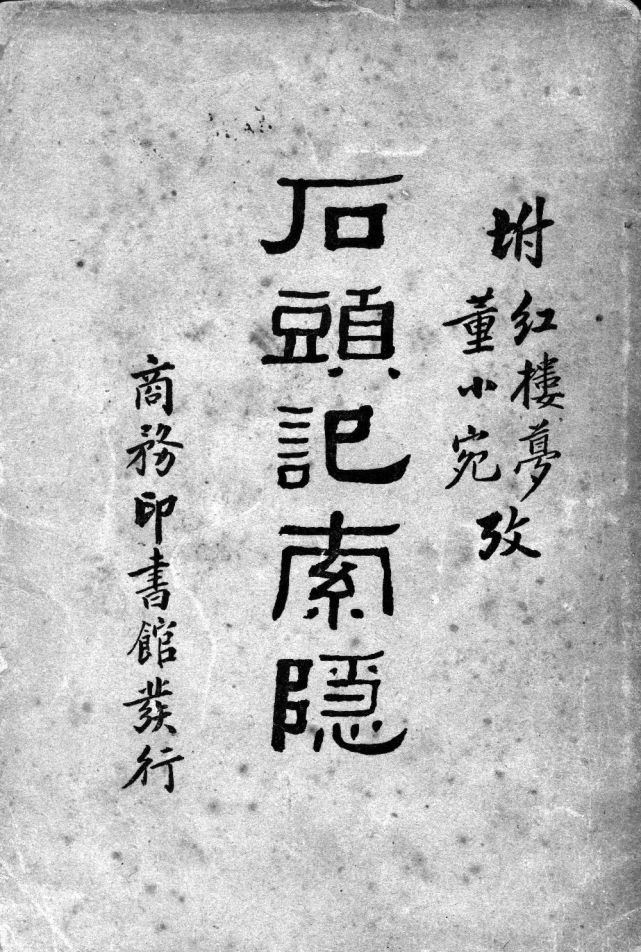 坿紅樓夢
董小宛攷
石頭記索隱
商務印書館發行